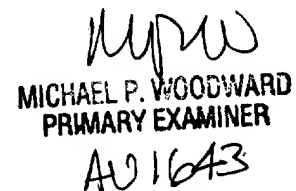 MICHAEL P. WOODWARD
PRIMARY EXAMINER
AU 1643